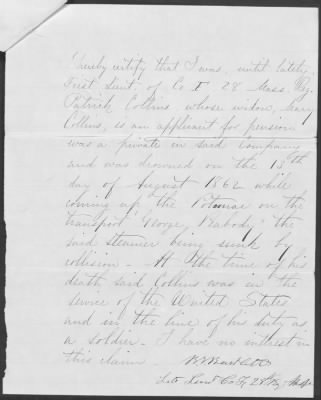 I hereby certify that I was, until lately,
First Lieut. of Co F 28 Mass. Reg.
Patrick Collins whose widow, Mary
Collins, is an applicant for pension
was a private in said Company
and was drowned on the 13th
day of August 1862 while
coming up the Potomac on the
transport "George Peabody" the
said steamer being sunk by
collision - At the time of his
death said Collins was in the
service of the United States
and in the line of his duty as
a soldier. I have no interest in
this claim -
late Lieut Co F, 28th Reg.